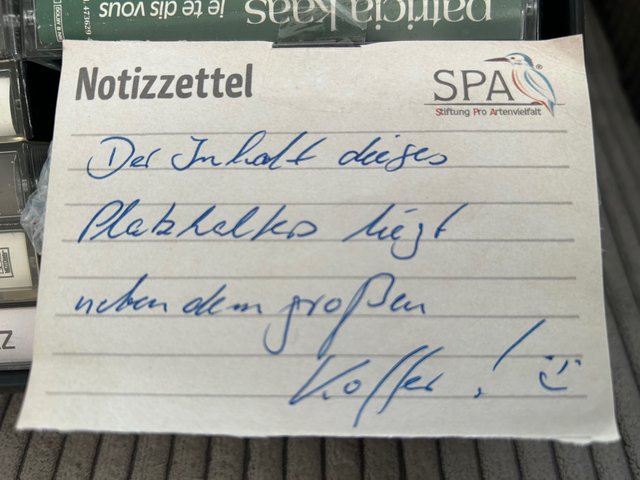 patricia kaas
je te dis vous
Notizzettel
SPA
Stiftung Pro Artenvielfalt
Der Inhalt dieses
Platzhalters liegt
neben dem großen
Koffer! :)